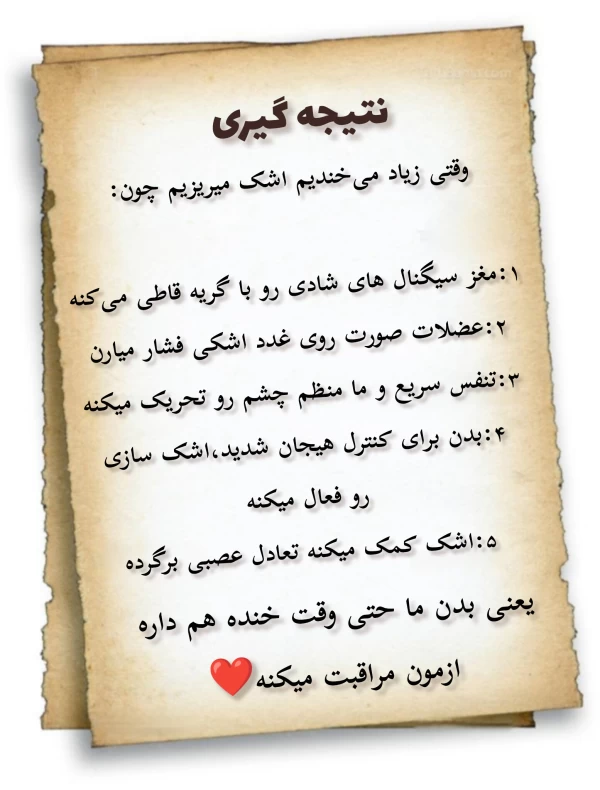 نتیجه گیری
وقتی زیاد می‌خندیم اشک میریزیم چون:
۱:مغز سیگنال های شادی رو با گریه قاطی می‌کنه
۲:عضلات صورت روی غدد اشکی فشار میارن
۳:تنفس سریع و ما منظم چشم رو تحریک میکنه
۴:بدن برای کنترل هیجان شدید،اشک سازی
رو فعال میکنه
۵:اشک کمک میکنه تعادل عصبی برگرده
یعنی بدن ما حتی وقت خنده هم داره
ازمون مراقبت میکنه❤️